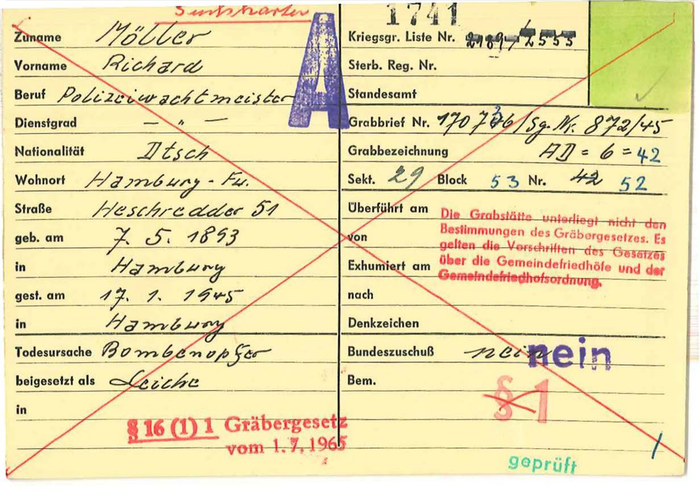 1741
Zuname Möller
Vorname Richard
Beruf Polizeiwachtmeister
Dienstgrad — " —
Nationalität Dtsch
Wohnort Hamburg-Fu.
Straße Heschredder 51
geb. am 7. 5. 1893
in Hamburg
gest. am 17. 1. 1945
in Hamburg
Todesursache Bombenopfer
beigesetzt als Leiche
in
§ 16 (1) 1 Gräbergesetz
vom 1. 7. 1965
A
Kriegsgr. Liste Nr.
Sterb. Reg. Nr.
Standesamt
Grabbrief Nr. /Sg. Nr. 872/45
Grabbezeichnung AD = 6 = 42
Sekt. 29 Block 53 Nr. 42 52
Überführt am
von
Exhumiert am
nach
Denkzeichen
Die Grabstätte unterliegt nicht den
Bestimmungen des Gräbergesetzes. Es
gelten die Vorschriften des Gesetzes
über die Gemeindefriedhöfe und der
Gemeindefriedhofsordnung.
Bundeszuschuß nein nein
Bem.
§ 1
geprüft